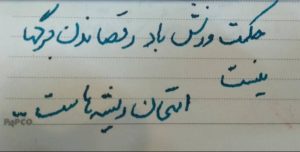 حکمت وزش باد رقصاندن برگها
نیست
امتحان ریشه هاست...
PAPCO